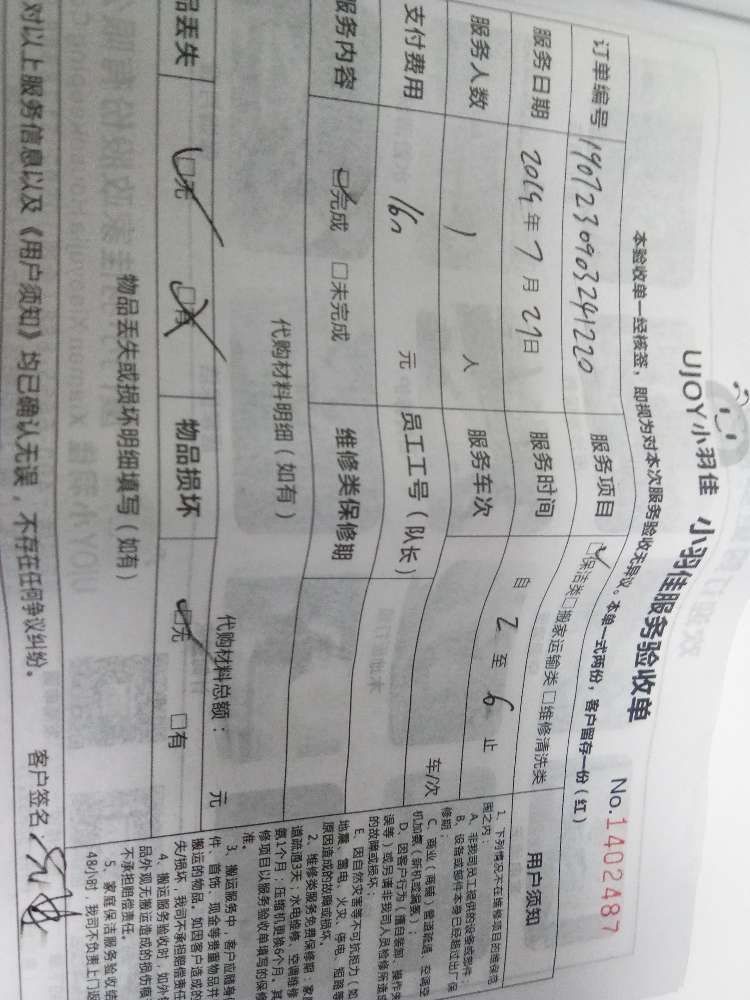 UJOY小羽佳 小羽佳服务验收单
No.1402487
本验收单一经核签，即视为对本次服务验收无异议。本单一式两份，客户留存一份（红）
订单编号 190723090324122​0 服务项目 保洁类 □搬家运输类 □维修清洗类
服务日期 2019年7月27日 服务时间 自 2 至 6 止
服务人数 1 人 服务车次 车/次
支付费用 160 元 员工工号（队长）
服务内容 完成 □未完成 维修类保修期
代购材料明细（如有） 代购材料总额： 元
品丢失 □无 □有 物品损坏 □无 □有
物品丢失或损坏明细填写（如有）
对以上服务信息以及《用户须知》均已确认无误，不存在任何争议纠纷。 客户签名：
用户须知
1、下列情况不在维修项目的维保范
围之内：
A、非我司员工提供的设备或部件；
B、设备或部件本身已经超过出厂保
修期
C、商业（商铺）管道疏通、空调空
机加氨（新机或漏氨）；
D、因客户行为（擅自装卸、操作失
误等）或另请非我司人员检修所造成
的故障或损坏；
E、因自然灾害等不可抗拒力（如
地震、雷电、火灾、停电、短路等
原因造成的故障或损坏。
2、维修类服务免费保修期：家庭
道疏通3天；水电维修、空调维修
氨1个月、压缩机更换6个月。其
修项目以服务验收单填写的保修
准。
3、搬运服务中，客户应随身
件、首饰、现金等贵重物品并
搬运的物品。如因客户造成的
失/损坏，我司不承担赔偿责任
4、搬运服务验收时，如外包
品外观无搬运造成的损伤痕
不承担赔偿责任。
5、家庭保洁服务验收结
48小时，我司不负责上门返